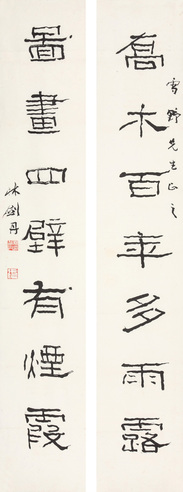 喬木百年多雨露
雪野先生正之
圖畫四壁有煙霞
林劍丹